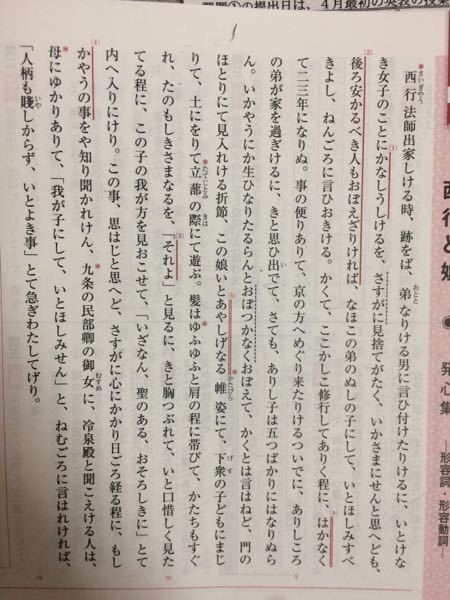 題①の提出日は、4月最初の英表の授業
西行と娘
発心集
形容詞・形容動詞
西行法師出家しける時、跡をば、弟なりける男に言ひ付けたりけるに、いとけな
さいぎやう
おとと
き女子のことにかなしうしけるを、さすがに見捨てがたく、いかさまにせんと思へども、
(1)
後ろ安かるべき人もおぼえざりければ、なほこの弟のぬしの子にして、いとほしみすべ
(2)
きよし、ねんごろに言ひおきける。かくて、ここかしこ修行してありく程に、はかなく
a
て二三年になりぬ。事の便りありて、京の方へめぐり来たりけるついでに、ありしころ
5
の弟が家を過ぎけるに、きと思ひ出でて、さても、ありし子は五つばかりにはなりぬら
い
ん。いかやうにか生ひなりたるらんとおぼつかなくおぼえて、かくとは言はねど、門の
ほとりにて見入れける折節、この娘いとあやしげなる帷姿にて、下衆の子どもにまじ
b
かたびら
げす
りて、土にをりて立蔀の際にて遊ぶ。髪はゆふゆふと肩の程に帯びて、かたちもすぐ
たてじとみ
きは
れ、たのもしきさまなるを、「それよ」と見るに、きと胸つぶれて、いと口惜しく見た
(3)
10
てる程に、この子の我が方を見おこせて、「いざなん、聖のある、おそろしきに」とて
内へ入りにけり。この事、思はじと思へど、さすがに心にかかり日ごろ経る程に、もし
かやうの事をや知り聞かれけん、九条の民部卿の御女に、冷泉殿と聞こえける人は、
(4)
むすめ
母にゆかりありて、「我が子にして、いとほしみせん」と、ねむごろに言はれければ、
「人柄も賤しからず、いとよき事」とて急ぎわたしてげり。
いや
15